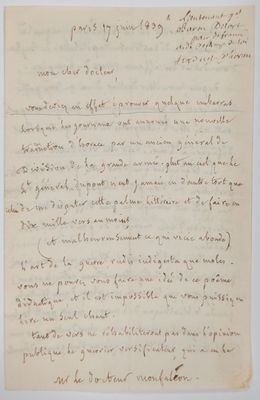 paris 17 juin 1839
Lieutenant gal
baron Delort
pair de france
aide de camp du roi
mon cher docteur,
vous devez en effet éprouver quelque embarras
lorsque les journaux ont annoncé une nouvelle
traduction d'horace par un ancien général de
division de la grande armée. plut au ciel que le
Lt général dupont n'eut jamais eu d'autre tort que
celui de me disputer cette palme littéraire et de faire en
Dix mille vers au moins
(et malheureusement ce qui vicie abonde)
L'art de la guerre rudis indigesta que moles.
vous ne pouvez vous faire une idée de ce poème
didactique et il est impossible que vous puissiez en
lire un seul chant.
tant de vers ne réhabiliteront pas dans l'opinion
publique le guerrier versificateur qui a
mr le docteur monfalcon.